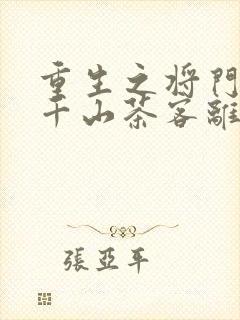 重生之将門
千山茶客離
張亞平